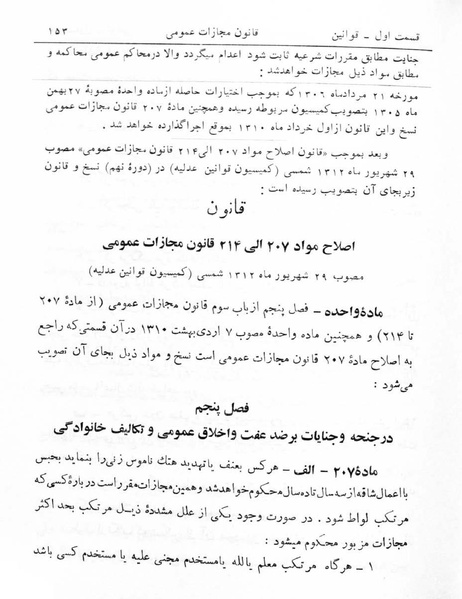 قسمت اول - قوانین قانون مجازات عمومی ۱۵۳
جنایت مطابق مقررات شرعیه ثابت شود اعدام میگردد والا درمحاکم عمومی محاکمه و
مطابق مواد ذیل مجازات خواهدشد:
مورخه ۲۱ مردادماه ۱۳۰۲که بموجب اختیارات حاصله ازماده واحدهٔ مصوبهٔ ۲۷بهمن
ماه ۱۳۰۵ بتصویب کمیسیون مربوطه رسیده وهمچنین مادهٔ ۲۰۷ قانون مجازات عمومی
نسخ واین قانون ازاول خرداد ماه ۱۳۱۰ بموقع اجراگذارده خواهد شد .
وبعد بموجب «قانون اصلاح مواد ۲۰۷ الی۲۱۴ قانون مجازات عمومی» مصوب
۲۹ شهریور ماه ۱۳۱۲ شمسی (کمیسیون قوانین عدلیه) در (دورهٔ نهم) نسخ و قانون
زیربجای آن بتصویب رسیده است :
قانون
اصلاح مواد ۲۰۷ الی ۲۱۴ قانون مجازات عمومی
مصوب ۲۹ شهریور ماه ۱۳۱۲ شمسی (کمیسیون قوانین عدلیه)
مادهٔ واحده - فصل پنجم ازباب سوم قانون مجازات عمومی (از مادهٔ ۲۰۷
تا ۲۱۴) و همچنین ماده واحدهٔ مصوب ۷ اردیبهشت ۱۳۱۰ درآن قسمتی‌که راجع
به اصلاح مادهٔ ۲۰۷ قانون مجازات عمومی است نسخ و مواد ذیل بجای آن تصویب
می‌شود :
فصل پنجم
درجنحه وجنایات برضد عفت واخلاق عمومی و تکالیف خانوادگی
مادهٔ ۲۰۷ - الف - هرکس بعنف یاتهدید هتك ناموس زنی‌را بنماید بحبس
بااعمال شاقه ازسه‌سال تاده‌سال محکوم خواهدشد وهمین مجازات مقرراست دربارهٔ کسی‌که
مرتکب لواط شود . در صورت وجود یکی از علل مشددهٔ ذیـل مرتکب بحد اکثر
مجازات مزبور محکوم میشود :
۱ - هرگاه مرتکب معلم یالله یامستخدم مجنی علیه یا مستخدم کسی باشد